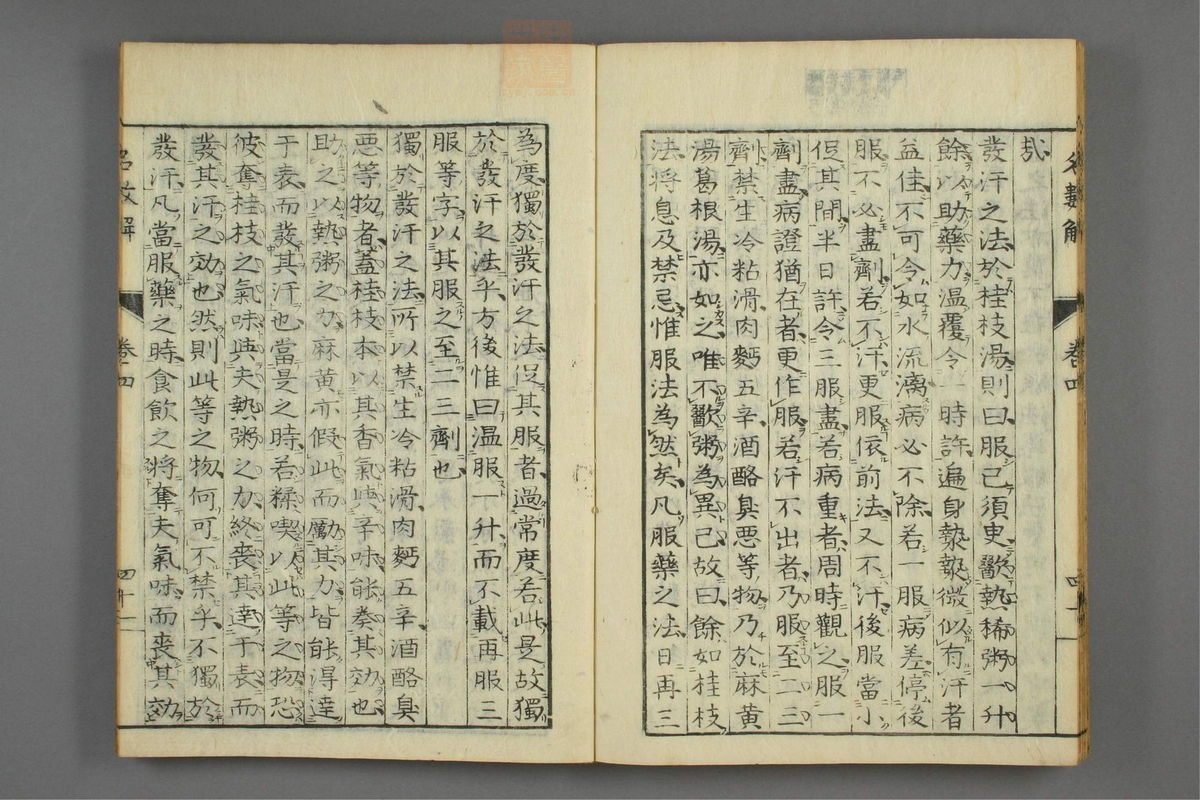 哉
發汗之法於桂枝湯則曰服已須臾歠熱稀粥一升
餘以助藥力溫覆令一時許遍身漐漐微似有汗者
益佳不可令如水流漓病必不除若一服病差停後
服不必盡劑若不汗更服依前法又不汗後服當小
促其間半日許令三服盡若病重者周時觀之服一
劑盡病證猶在者更作服若汗不出者乃服至二三
劑禁生冷粘滑肉麪五辛酒酪臭惡等物乃於麻黃
湯葛根湯亦如之唯不歠粥為異已故曰餘如桂枝
法將息及禁忌惟服法為然矣凡服藥之法日再三
為度獨於發汗之法促其服者過常度若此是故獨
於發汗之法乎方後惟曰溫服一升而不載再服三
服等字以其服之至二三劑也
獨於發汗之法所以禁生冷粘滑肉麪五辛酒酪臭
惡等物者蓋桂枝本以其香氣與辛味能奏其効也
助之以熱粥之力麻黃亦假此而勵其力皆能得達
于表而發其汗也當是之時若糅喫以此等之物恐
彼奪桂枝之氣味與夫熱粥之力終喪其達于表而
發其汗之効也然則此等之物何可不禁乎不獨於
發汗凡當服藥之時食飲之將奪夫氣味而喪其効
名數解 卷四 四十一